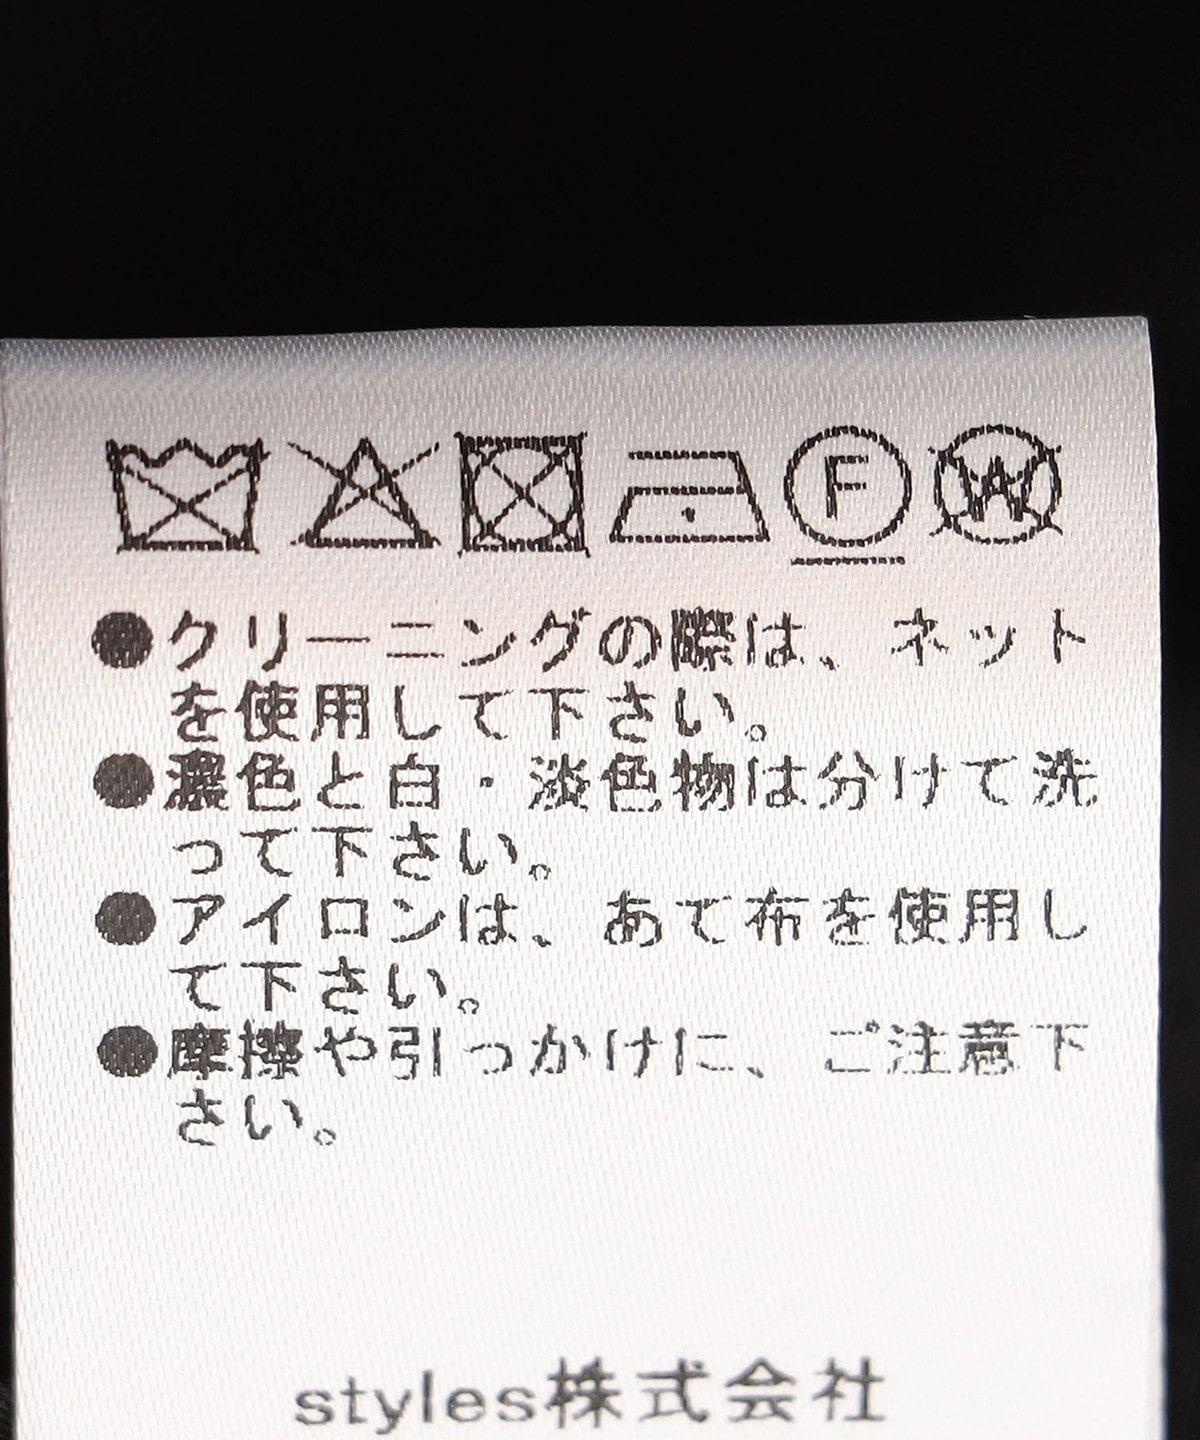 F W
●クリーニングの際は、ネット
を使用して下さい。
●濃色と白・淡色物は分けて洗
って下さい。
●アイロンは、あて布を使用し
て下さい。
●摩擦や引っかけに、ご注意下
さい。
styles株式会社